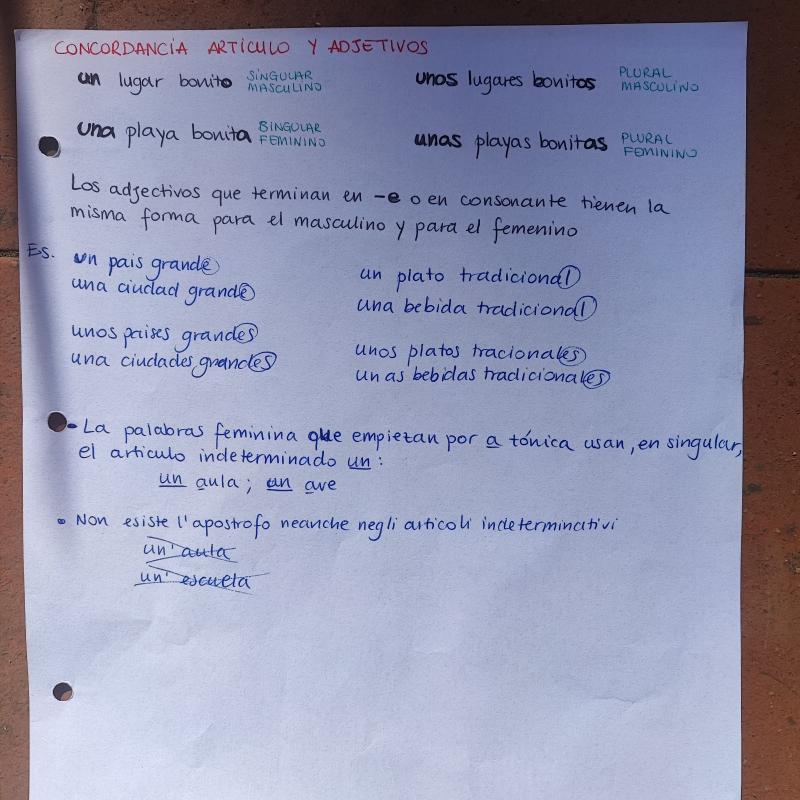 CONCORDANCIA ARTICULO Y ADJETIVOS
un lugar bonito SINGULAR MASCULINO
unos lugares bonitos PLURAL MASCULINO
una playa bonita SINGULAR FEMININO
unas playas bonitas PLURAL FEMININO
Los adjectivos que terminan en -e o en consonante tienen la
misma forma para el masculino y para el femenino
Es.
un pais grande
una ciudad grande
unos paises grandes
una ciudades grandes
un plato tradicional
una bebida tradicional
unos platos tracionales
unas bebidas tradicionales
- La palabras feminina que empiezan por a tónica usan, en singular,
el articulo indeterminado un:
un aula; un ave
• Non esiste l'apostrofo neanche negli articoli indeterminativi
un' aula
un' escuela